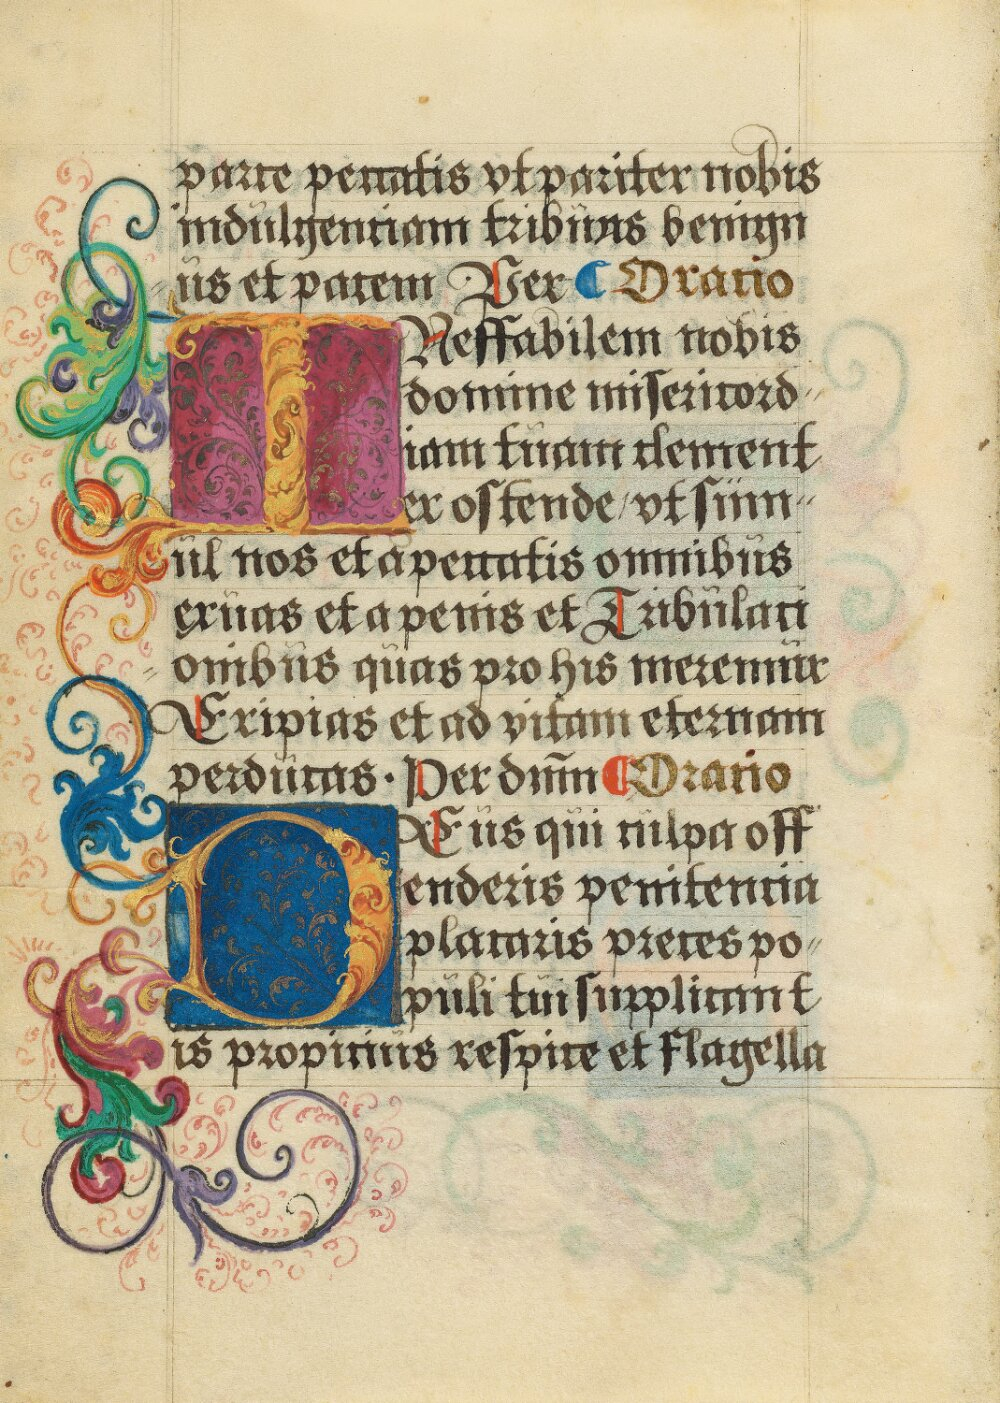 parce peccatis vt pariter nobis
indulgentiam tribuas benign
us et pacem Per Oratio
INeffabilem nobis
domine misericord
iam tuam clement
er ostende / vt sim
ul nos et a peccatis omnibus
exuas et a penis et Tribulati
onibus quas pro his meremur
Eripias et ad vitam eternam
perducas · Per dnm Oratio
DEus qui culpa off
enderis penitencia
placaris preces po
puli tui supplicant
is propicius respice et flagella